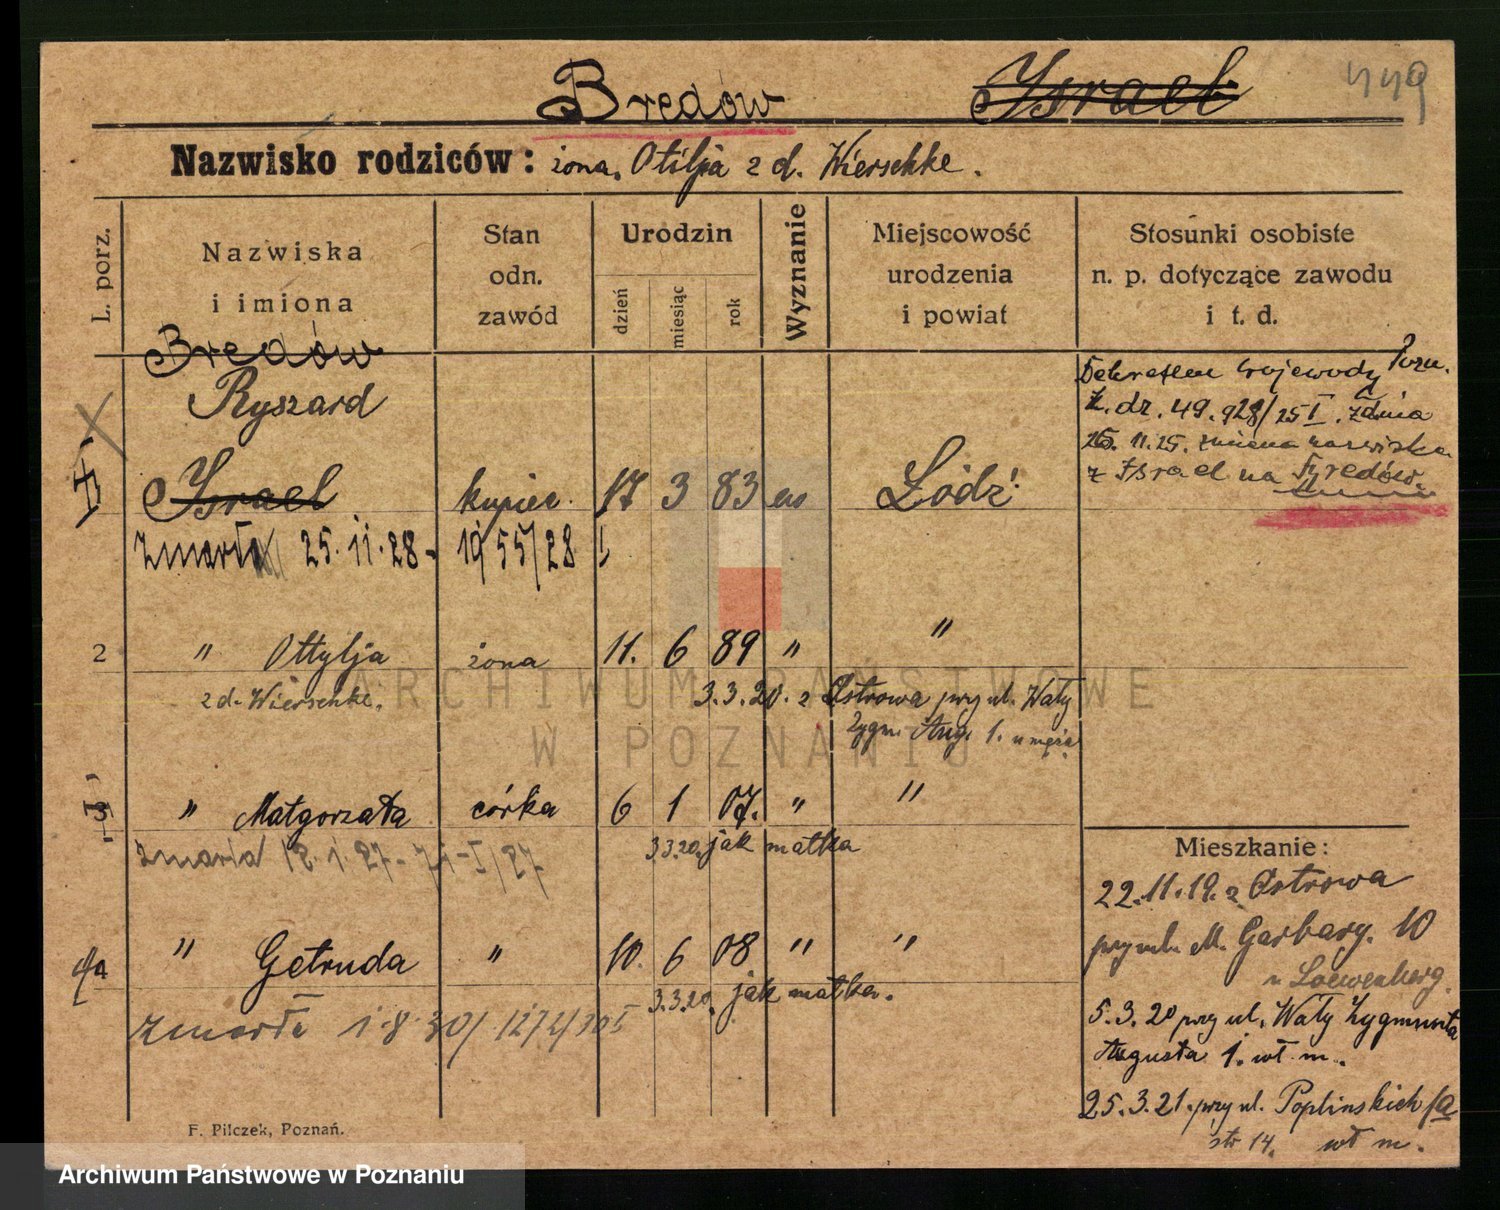 Bredów Ysrael 449
Nazwisko rodziców: żona. Otilja z d. Wierschke.
L. porz.
Nazwiska i imiona
Stan odn. zawód
Urodzin
dzień miesiąc rok
Wyznanie
Miejscowość urodzenia i powiat
Stosunki osobiste n. p. dotyczące zawodu i t. d.
Bredów
Ryszard
Ysrael kupiec 17 3 83 ew Łódź
Dekretem Wojewody Pozn.
L. dz. 49.928/25 I. z dnia
26. 11. 25. zmiana nazwiska
z Ysrael na Bredów.
zmarł 25. 11. 28. 1955/28 I
2 " Ottylja żona 11. 6 89 " "
z d. Wierschke. 3.3.20. z Ostrowa przy ul. Wały
Zygm. Aug. 1. u męża
3 " Małgorzata córka 6 1 07. " "
3.3.20. jak matka
zmarła 12. 1. 27 - 74-I/27
4a " Getruda " 10. 6 08 " "
3.3.20. jak matka.
zmarła 1. 8. 30/ 1274/30 I
Mieszkanie:
22. 11. 19. z Ostrowa
przy ul. M. Garbary. 10
u Loewenberg.
5. 3. 20 przy ul. Wały Zygmunta
Augusta 1. wł m.
25. 3. 21. przy ul. Poplińskich 1a
str 14. wł m.
F. Pilczek, Poznań.
ARCHIWUM PAŃSTWOWE
W POZNANIU
Archiwum Państwowe w Poznaniu